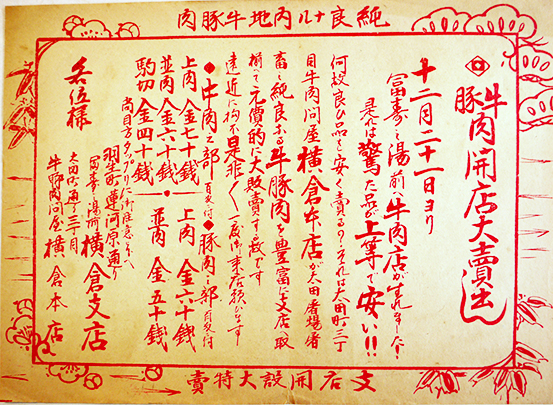 純良ナル内地牛豚肉
牛豚肉開店大賣出し
十二月二十一日ヨリ
冨壽之湯前へ牛肉店が生れました！
是れは驚た品が上等で安い!!
何故良ひ品を安く賣る？それは太田町二丁
目牛肉問屋横倉本店が太田屠場
畜之純良なる牛豚肉を豊富に支店へ取
揃へて元價的に大販賣する故です
遠近に拘ず是非〱一度御来店願ひます
◆牛肉之部 百匁付
上肉 金七十錢
並肉 金六十錢
駒切 金四十錢
◆豚肉之部 百匁付
上肉 金六十錢
並肉 金五十錢
尚目方タップリに御注意
蓮河原通り
冨壽之湯前 横倉支店
太田町通り二丁目
牛豚肉問屋 横倉本店
各位様
支店開設大特賣